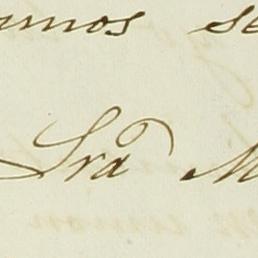 umos se
Sra M